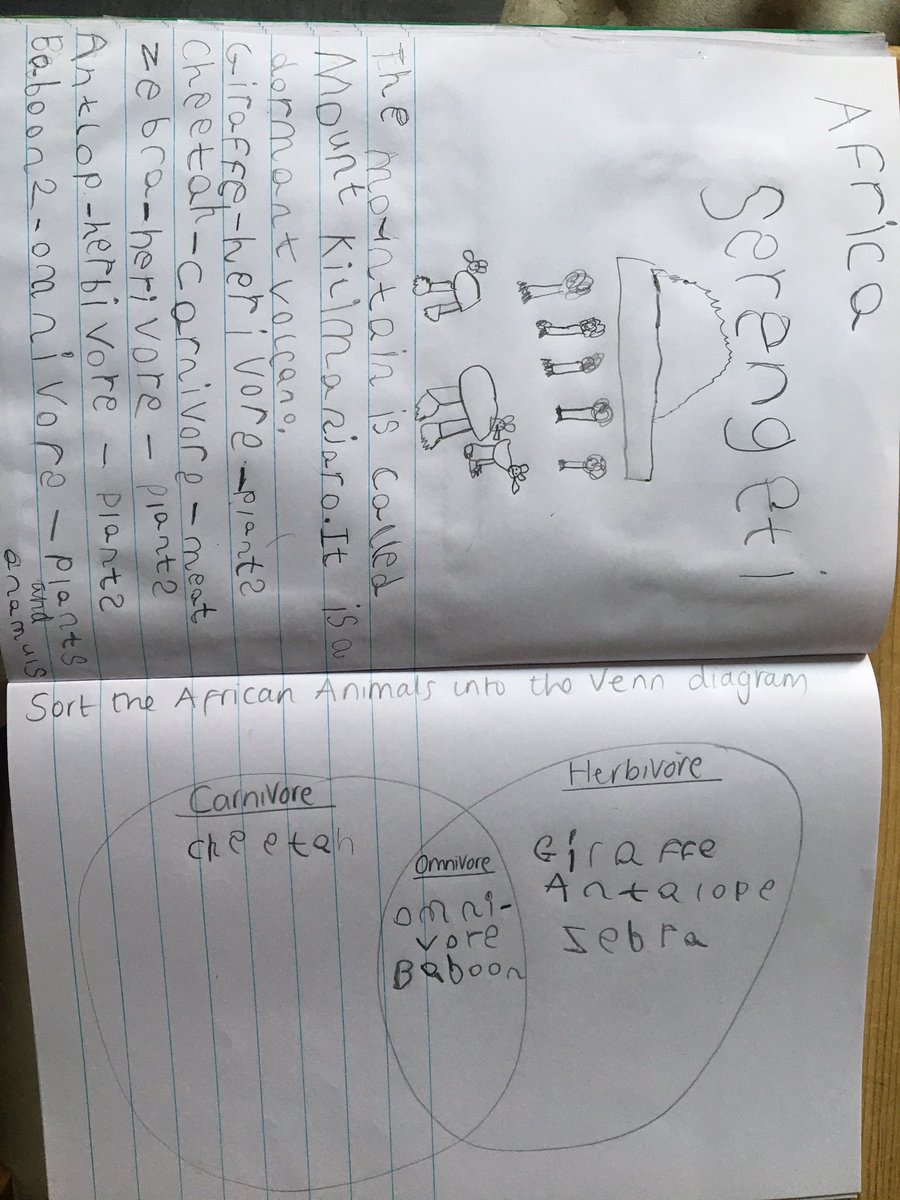 Africa
Serengeti
The mountain is called
Mount Kilimanjaro. It is a
dormant volcano.
Giraffe-herivore-plants
Cheetah-carnivore-meat
zebra-herivore-plants
Antlop-herbivore-plants
Baboons-omnivore-plants
and
anamuls
Sort the African Animals into the Venn diagram
Carnivore
cheetah
Omnivore
omni-
vore
Baboon
Herbivore
Giraffe
Antalope
zebra